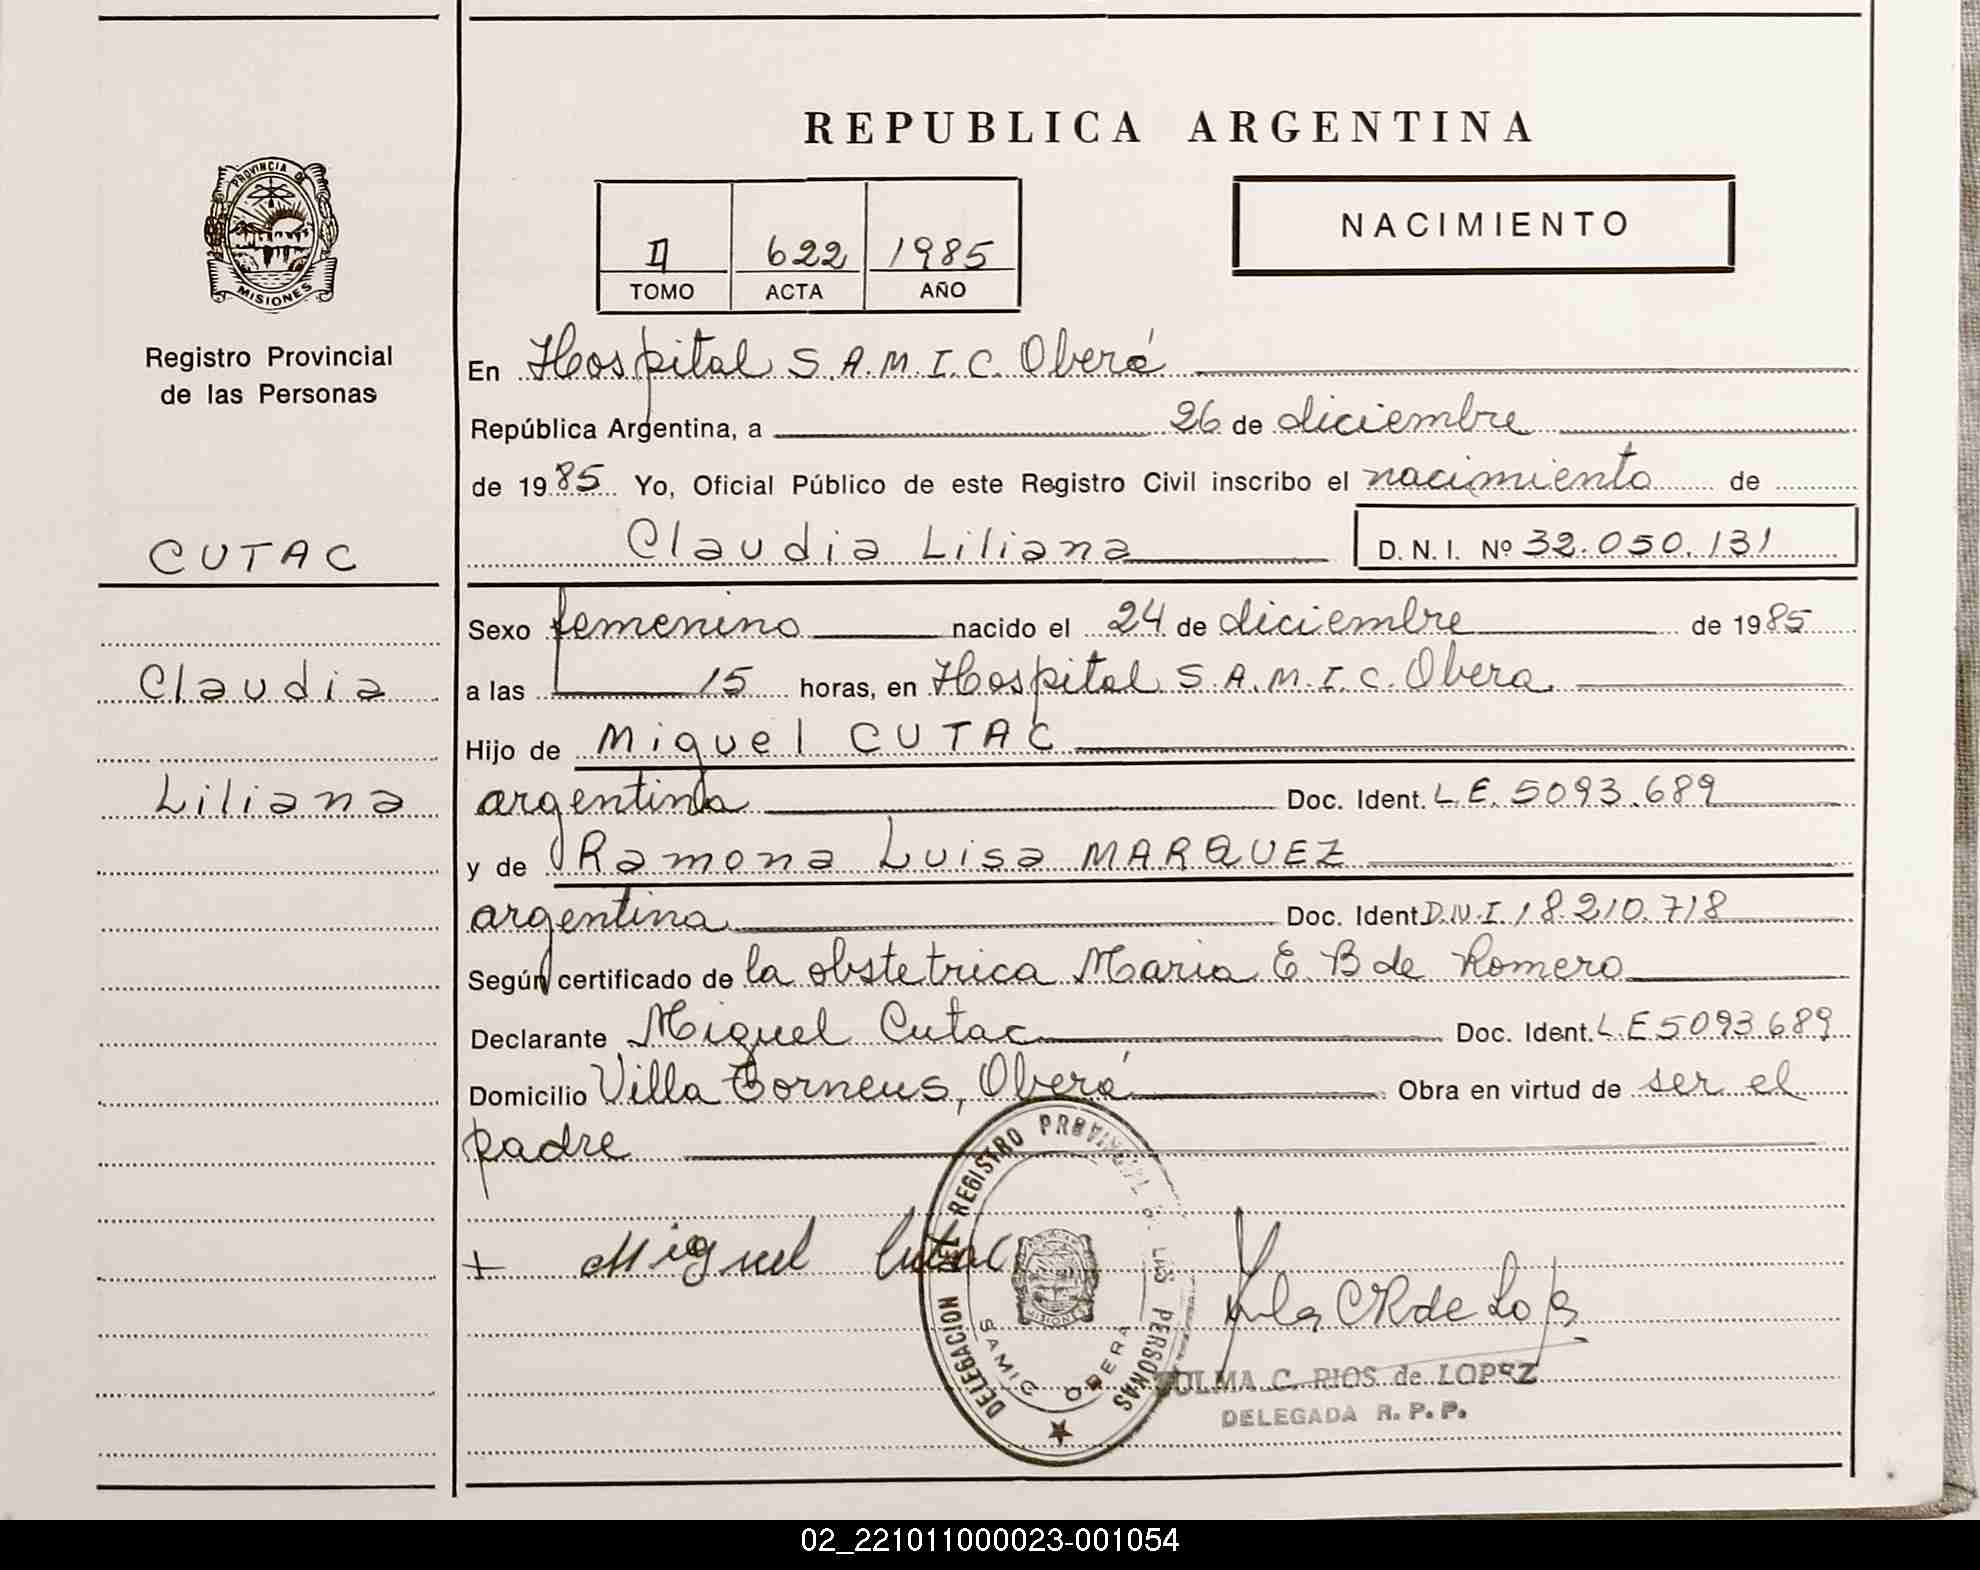 REPUBLICA ARGENTINA
PROVINCIA DE
MISIONES
Registro Provincial
de las Personas
II 622 1985
TOMO ACTA AÑO
NACIMIENTO
En Hospital S.A.M.I.C. Oberá
República Argentina, a 26 de diciembre
de 1985 Yo, Oficial Público de este Registro Civil inscribo el nacimiento de
CUTAC
Claudia Liliana D.N.I. Nº 32.050.131
Sexo femenino nacido el 24 de diciembre de 1985
Claudia
a las 15 horas, en Hospital S.A.M.I.C. Obera
Hijo de Miguel CUTAC
Liliana
argentina Doc. Ident. L.E. 5093.689
y de Ramona Luisa MARQUEZ
argentina Doc. Ident D.N.I. 18.210.718
Según certificado de la obstetrica Maria E. B de Romero
Declarante Miguel Cutac Doc. Ident. L.E 5093.689
Domicilio Villa Oberá Obra en virtud de ser el
padre
+ Miguel Cutac
DELEGACION DEL REGISTRO PROVINCIAL DE LAS PERSONAS
SAMIC OBERA
ZULMA C. RIOS de LOPEZ
DELEGADA R.P.P.
02_221011000023-001054